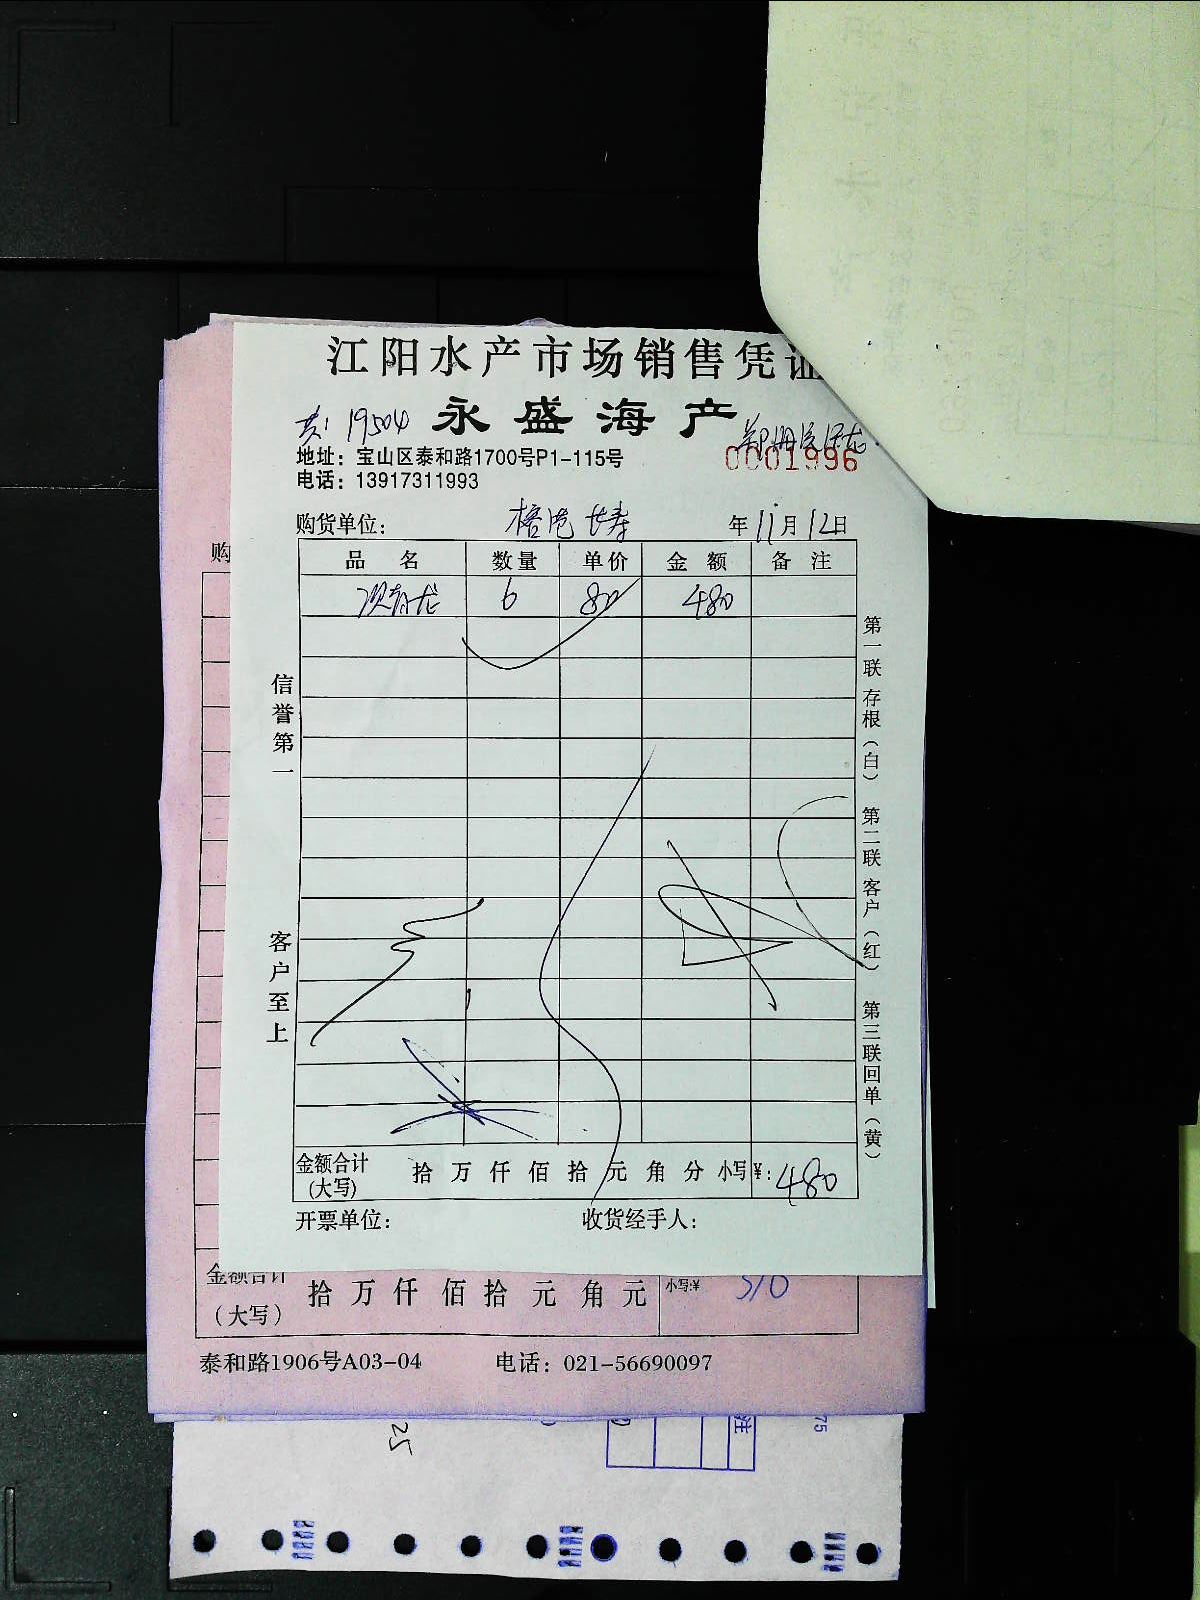 江阳水产市场销售凭证
共: 19504 永盛海产
地址：宝山区泰和路1700号P1-115号
0001996
电话：13917311993
购货单位： 榕港 长寿 年11月12日
品名 数量 单价 金额 备注
6 80 480
信誉第一
客户至上
第一联 存根（白） 第二联 客户（红） 第三联 回单（黄）
金额合计（大写） 拾 万 仟 佰 拾 元 角 分 小写¥：480
开票单位： 收货经手人：
购
金额合计（大写） 拾 万 仟 佰 拾 元 角 元 小写:¥ 510
泰和路1906号A03-04 电话：021-56690097
25
注
75